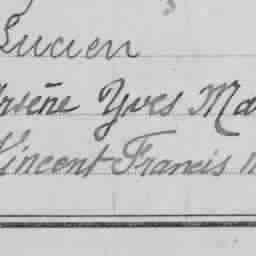 Lucien
Arsène Yves Ma
Vincent Francis